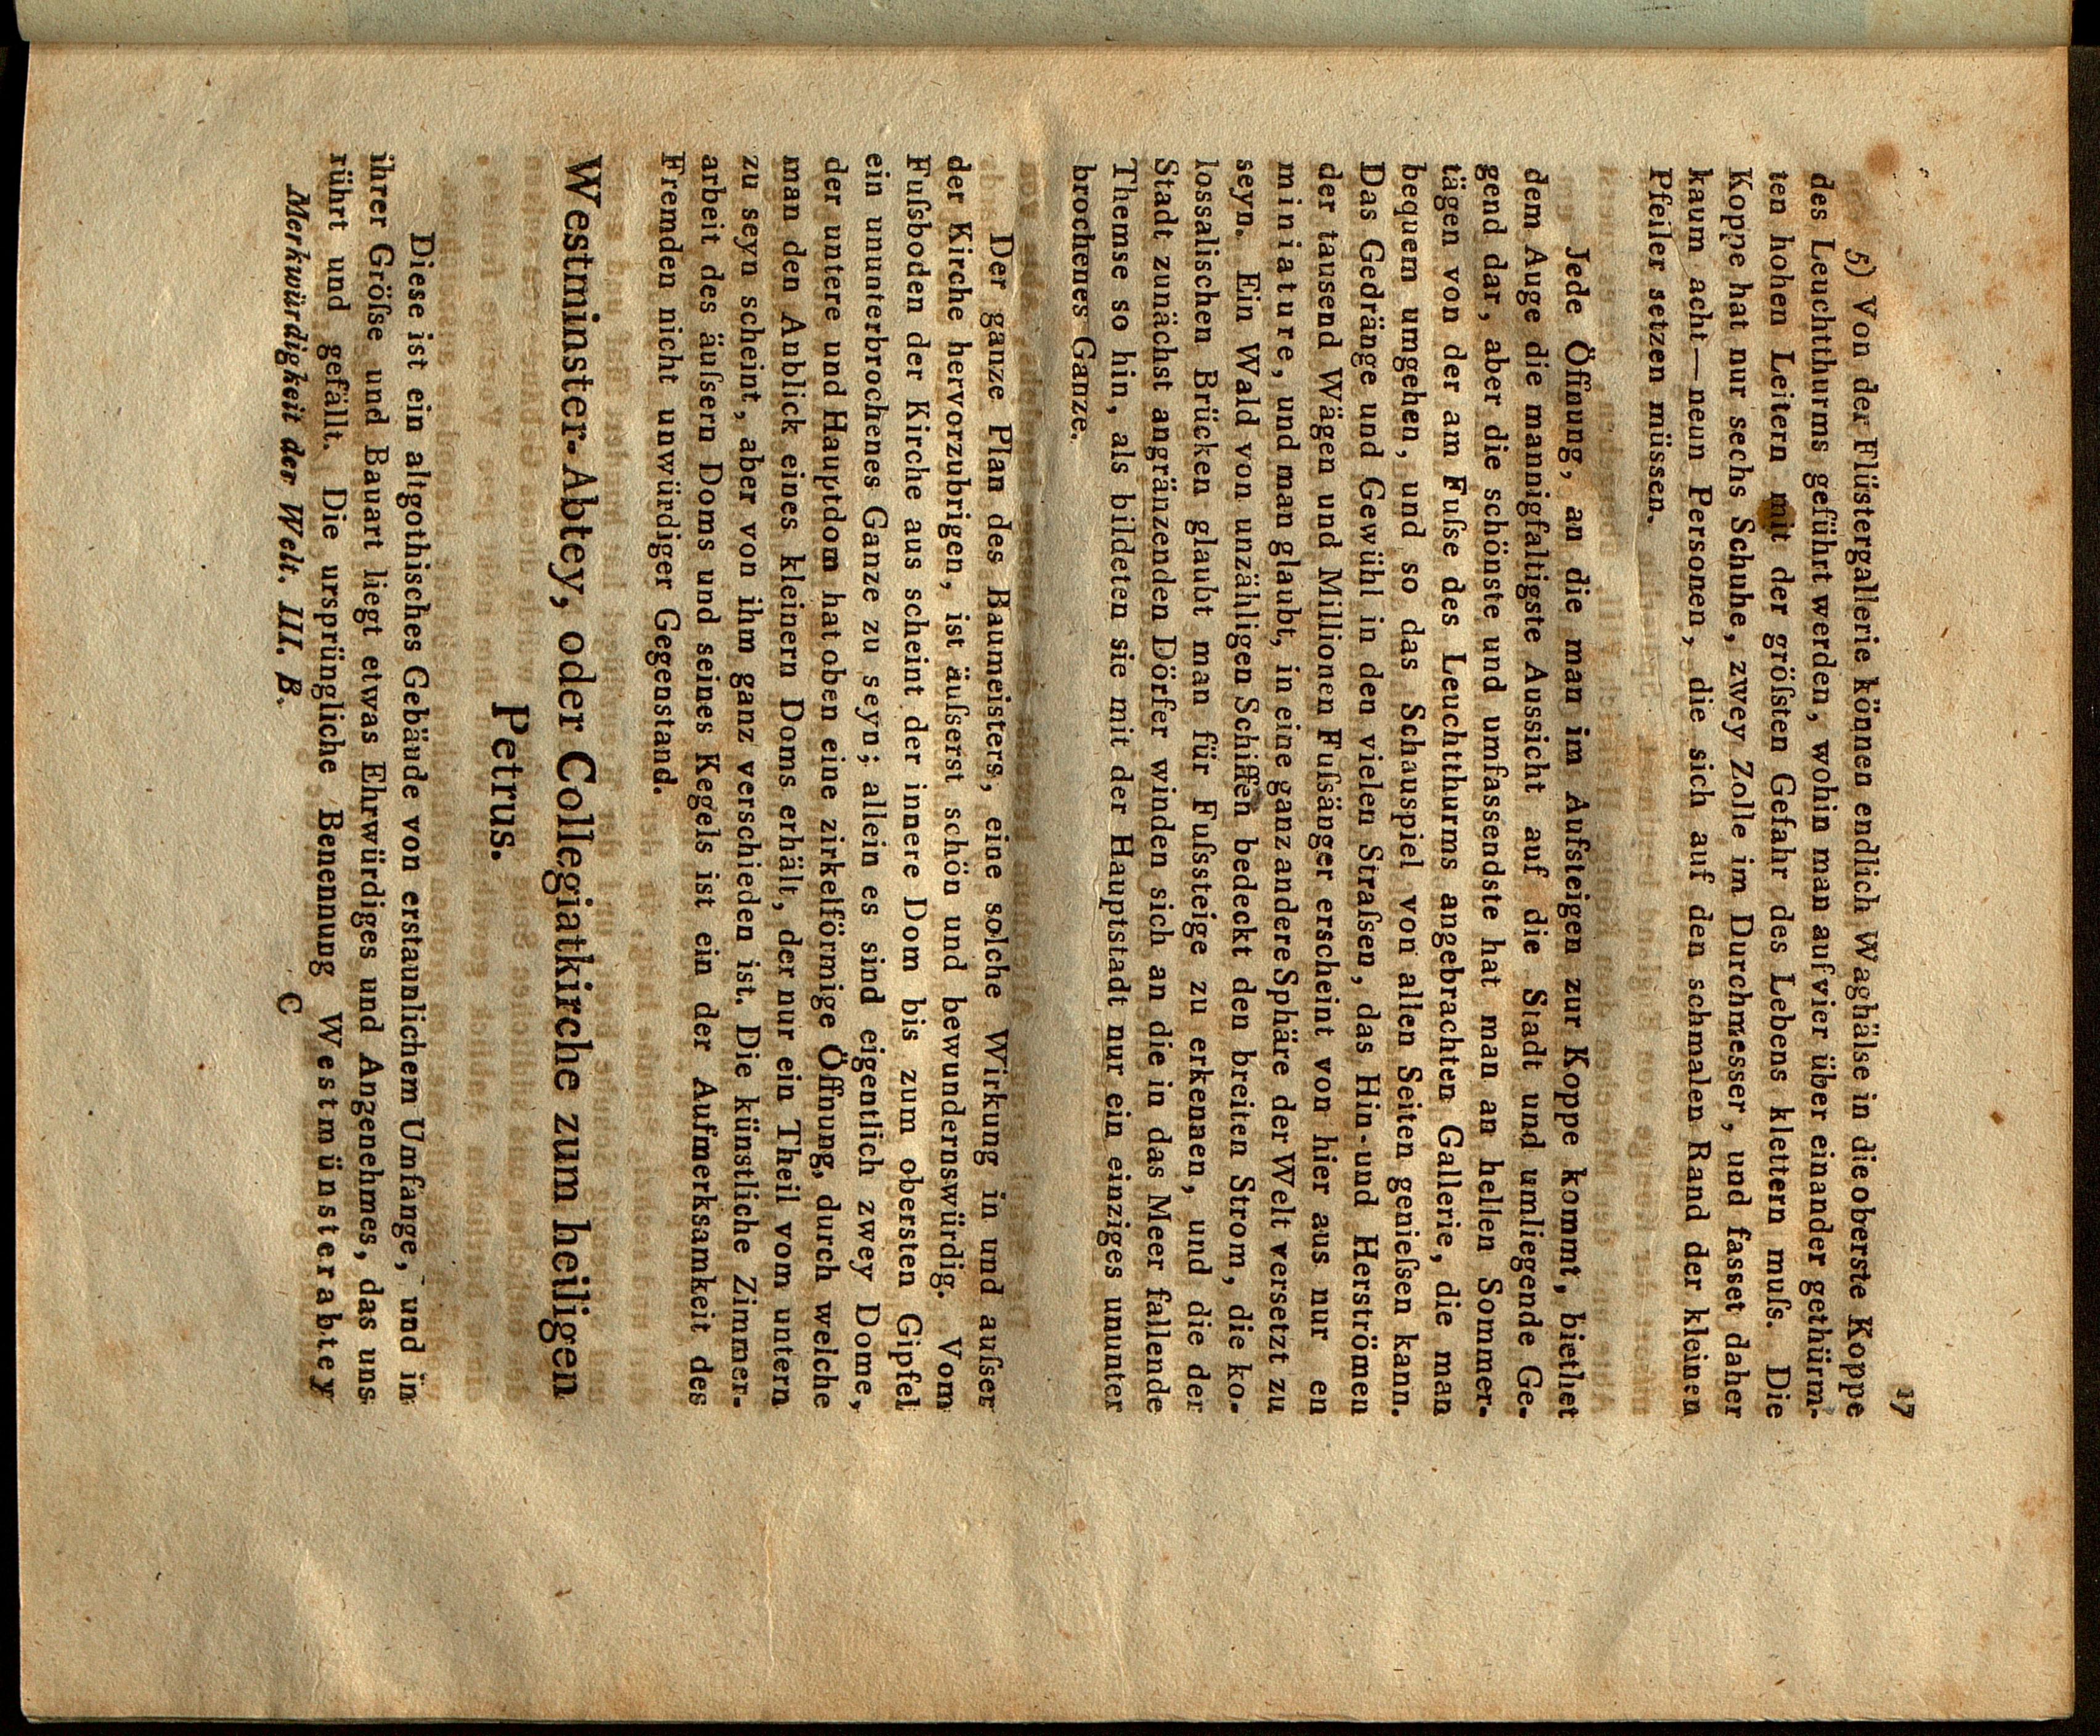 17
5) Von der Flüstergallerie können endlich Waghälse in die oberste Koppe
des Leuchtthurms geführt werden, wohin man auf vier über einander gethürm-
ten hohen Leitern mit der größten Gefahr des Lebens klettern muß. Die
Koppe hat nur sechs Schuhe, zwey Zolle im Durchmesser, und fasset daher
kaum acht—neun Personen, die sich auf den schmalen Rand der kleinen
Pfeiler setzen müssen.
Jede Öffnung, an die man im Aufsteigen zur Koppe kommt, biethet
dem Auge die mannigfaltigste Aussicht auf die Stadt und umliegende Ge-
gend dar, aber die schönste und umfassendste hat man an hellen Sommer-
tägen von der am Fuße des Leuchtthurms angebrachten Gallerie, die man
bequem umgehen, und so das Schauspiel von allen Seiten genießen kann.
Das Gedränge und Gewühl in den vielen Straßen, das Hin- und Herströmen
der tausend Wägen und Millionen Fußsänger erscheint von hier aus nur en
miniature, und man glaubt, in eine ganz andere Sphäre der Welt versetzt zu
seyn. Ein Wald von unzähligen Schiffen bedeckt den breiten Strom, die ko-
lossalischen Brücken glaubt man für Fußsteige zu erkennen, und die der
Stadt zunächst angränzenden Dörfer winden sich an die in das Meer fallende
Themse so hin, als bildeten sie mit der Hauptstadt nur ein einziges ununter
brochenes Ganze.
Der ganze Plan des Baumeisters, eine solche Wirkung in und außer
der Kirche hervorzubrigen, ist äußerst schön und bewundernswürdig. Vom
Fußboden der Kirche aus scheint der innere Dom bis zum obersten Gipfel
ein ununterbrochenes Ganze zu seyn; allein es sind eigentlich zwey Dome,
der untere und Hauptdom hat oben eine zirkelförmige Öffnung, durch welche
man den Anblick eines kleinern Doms erhält, der nur ein Theil vom untern
zu seyn scheint, aber von ihm ganz verschieden ist. Die künstliche Zimmer-
arbeit des äußern Doms und seines Kegels ist ein der Aufmerksamkeit des
Fremden nicht unwürdiger Gegenstand.
Westminster-Abtey, oder Collegiatkirche zum heiligen
Petrus.
Diese ist ein altgothisches Gebäude von erstaunlichem Umfange, und in
ihrer Größe und Bauart liegt etwas Ehrwürdiges und Angenehmes, das uns
rührt und gefällt. Die ursprüngliche Benennung Westmünsterabtey
Merkwürdigkeit der Welt. III. B. C